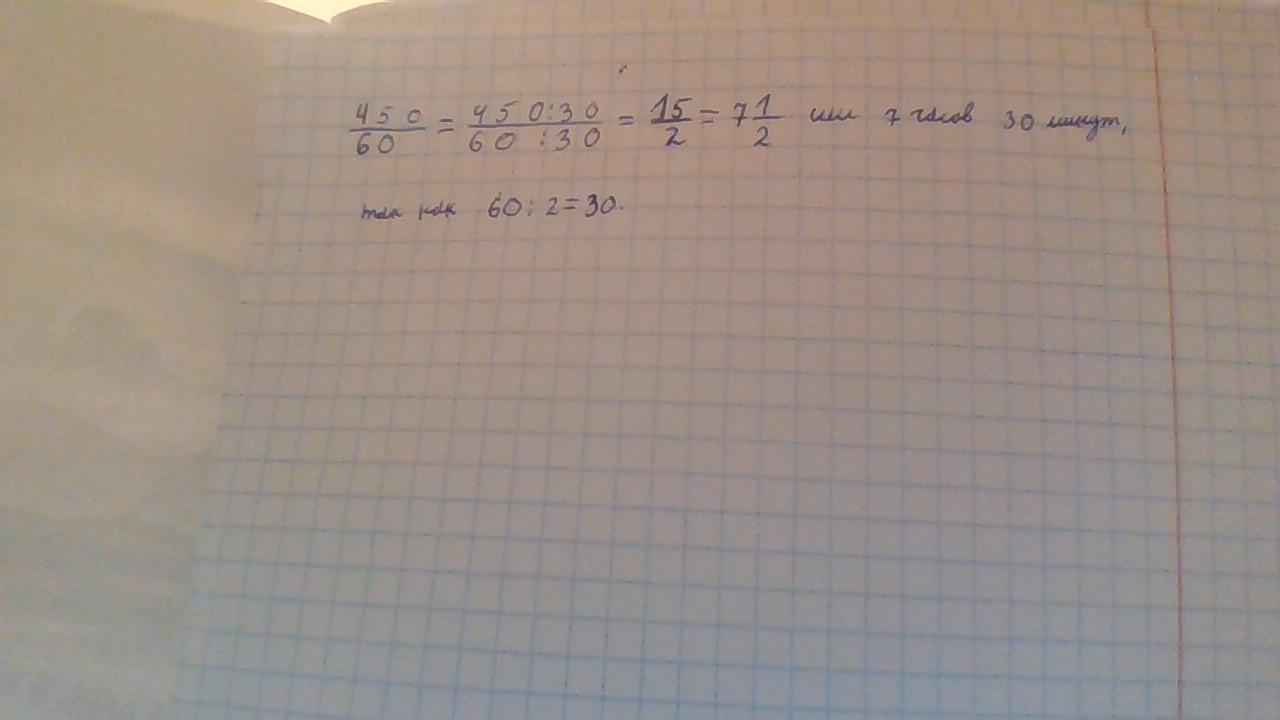 450/60 = 450:30/60:30 = 15/2 = 7 1/2 или 7 часов 30 минут,
так как 60:2=30.